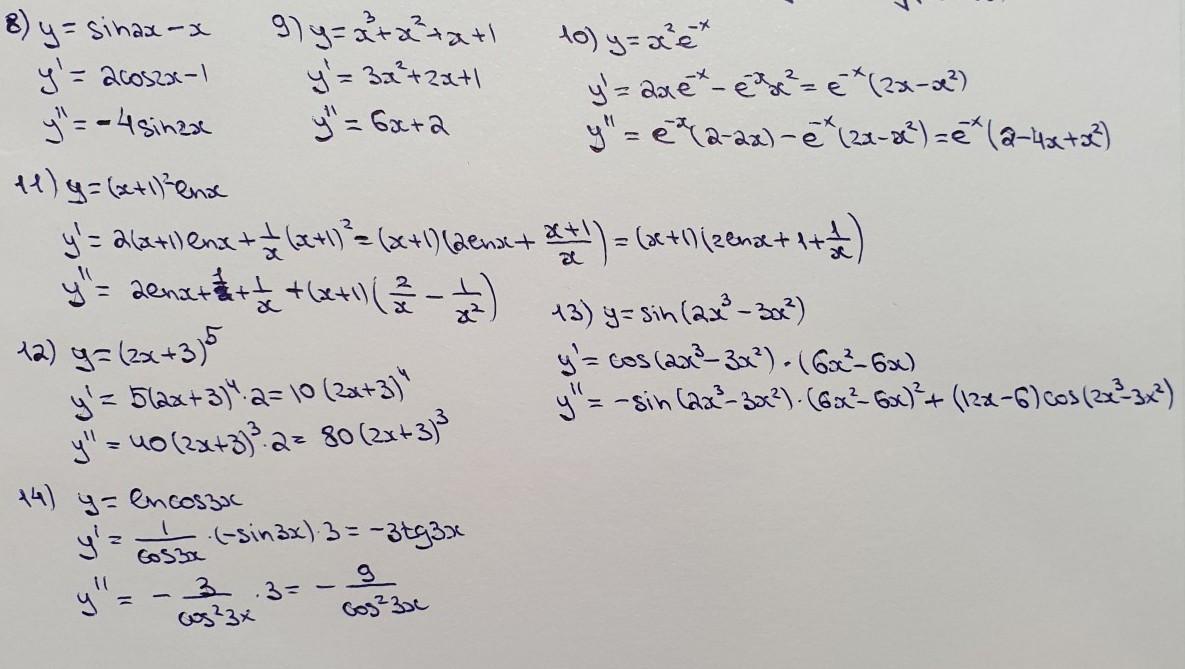 8) y = sin2x - x
y' = 2cos2x - 1
y'' = -4sin2x
9) y = x³ + x² + x + 1
y' = 3x² + 2x + 1
y'' = 6x + 2
10) y = x²e⁻ˣ
y' = 2xe⁻ˣ - e⁻ˣx² = e⁻ˣ(2x - x²)
y'' = e⁻ˣ(2 - 2x) - e⁻ˣ(2x - x²) = e⁻ˣ(2 - 4x + x²)
11) y = (x+1)²lnx
y' = 2(x+1)lnx + 1/x (x+1)² = (x+1)(2lnx + (x+1)/x) = (x+1)(2lnx + 1 + 1/x)
y'' = 2lnx + 1 + 1/x + (x+1)(2/x - 1/x²)
12) y = (2x+3)⁵
y' = 5(2x+3)⁴·2 = 10(2x+3)⁴
y'' = 40(2x+3)³·2 = 80(2x+3)³
13) y = sin(2x³ - 3x²)
y' = cos(2x³ - 3x²)·(6x² - 6x)
y'' = -sin(2x³ - 3x²)·(6x² - 6x)² + (12x - 6)cos(2x³ - 3x²)
14) y = lncos3x
y' = 1/cos3x ·(-sin3x)·3 = -3tg3x
y'' = - 3/cos²3x ·3 = - 9/cos²3x